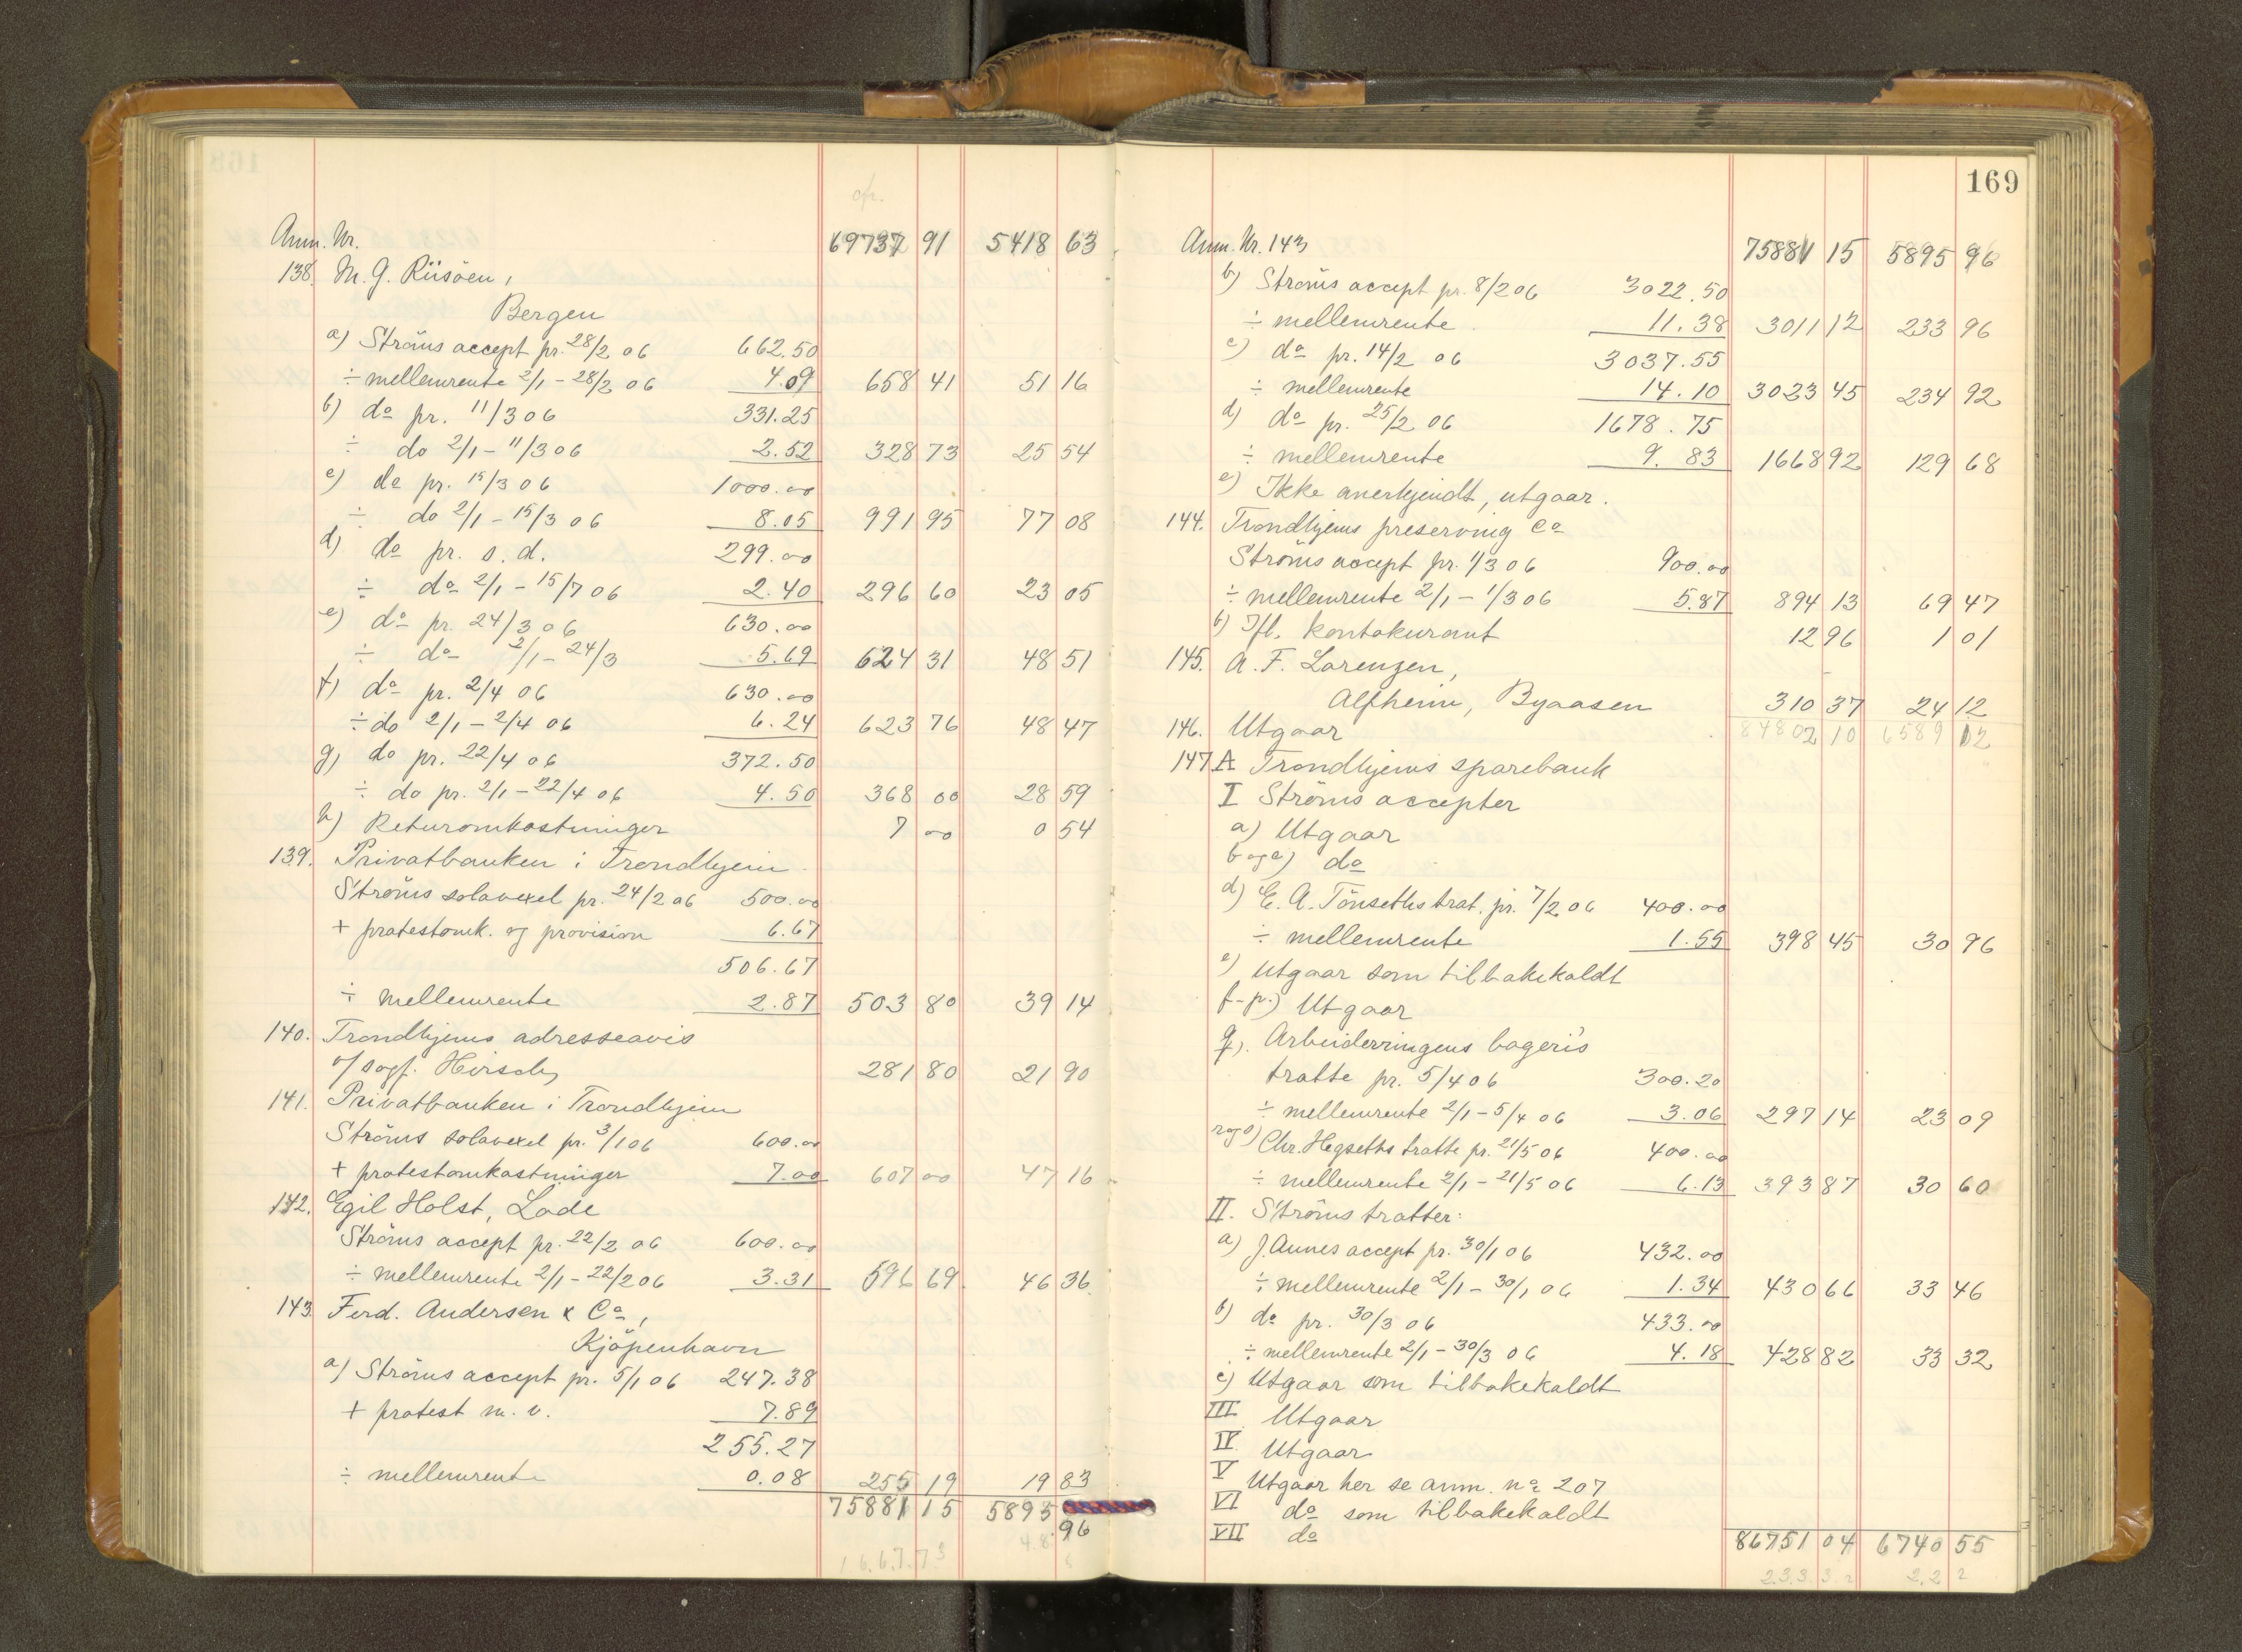 ofr.
Anm. Nr. 69737 91 5418 63
138. M. G. Riisöen,
Bergen
a) Ströms accept pr. 28/2 06 662.50
÷ mellemrente 2/1 - 28/2 06 4.09 658 41 51 16
b) do pr. 11/3 06 331.25
÷ do 2/1 - 11/3 06 2.52 328 73 25 54
c) do pr. 15/3 06 1000.00
÷ do 2/1 - 15/3 06 8.05 991 95 77 08
d) do pr. s. d. 299.00
÷ do 2/1 - 15/7 06 2.40 296 60 23 05
e) do pr. 24/3 06 630.00
÷ do 2/1 - 24/3 5.69 624 31 48 51
f) do pr. 2/4 06 630.00
÷ do 2/1 - 2/4 06 6.24 623 76 48 47
g) do pr. 22/4 06 372.50
÷ do pr. 2/1 - 22/4 06 4.50 368 00 28 59
h) Returomkostninger 7 00 0 54
139. Privatbanken i Trondhjem
Ströms solavexel pr. 24/2 06 500.00
+ protestomk. og provision 6.67
506.67
÷ mellemrente 2.87 503 80 39 14
140. Trondhjems adresseavis
v/ sagf. Hirsch, 281 80 21 90
141. Privatbanken i Trondhjem
Ströms solavexel pr. 3/1 06 600.00
+ protestomkostninger 7.00 607 00 47 16
142. Egil Holst, Lade
Ströms accept pr. 22/2 06 600.00
÷ mellemrente 2/1 - 22/2 06 3.31 596 69 46 36
143. Ferd. Andersen & Co,
Kjöpenhavn
a) Ströms accept pr. 5/1 06 247.38
+ protest m. v. 7.89
255.27
÷ mellemrente 0.08 255 19 19 83
75881 15 5895
96
169
Anm. Nr. 143 75881 15 5895 96
b) Ströms accept pr. 8/2 06 3022.50
÷ mellemrente 11.38 3011 12 233 96
c) do pr. 14/2 06 3037.55
÷ mellemrente 14.10 3023 45 234 92
d) do pr. 25/2 06 1678.75
÷ mellemrente 9.83 1668 92 129 68
e) Ikke anerkjendt, utgaar.
144. Trondhjems preserving Co
Ströms accept pr. 1/3 06 900.00
÷ mellemrente 2/1 - 1/3 06 5.87 894 13 69 47
b) Ifl. kontokurant 12 96 1 01
145. A. F. Lorenzen,
Alfheim, Byaasen 310 37 24 12
146. Utgaar 84802 10 6589 12
147 A Trondhjems sparebank
I Ströms accepter
a) Utgaar
b og c) do
d) E. A. Tönseths trat. pr. 7/2 06 400.00
÷ mellemrente 1.55 398 45 30 96
e) Utgaar som tilbakekaldt
f-p.) Utgaar
q). Arbeiderringens bageris
tratte pr. 5/4 06 300.20
÷ mellemrente 2/1 - 5/4 06 3.06 297 14 23 09
r og s) Chr. Hegseths tratte pr. 21/5 06 400.00
÷ mellemrente 2/1 - 21/5 06 6.13 393 87 30 60
II. Ströms tratter:
a) J. Aunes accept pr. 30/1 06 432.00
÷ mellemrente 2/1 - 30/1 06 1.34 430 66 33 46
b) do pr. 30/3 06 433.00
÷ mellemrente 2/1 - 30/3 06 4.18 428 82 33 32
c) Utgaar som tilbakekaldt
III Utgaar
IV Utgaar
V Utgaar her se anm. no 207
VI do som tilbakekaldt
VII do
86751 04 6740 55